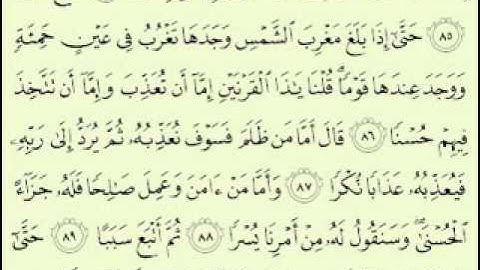 ٨٥ حَتَّىٰٓ إِذَا بَلَغَ مَغْرِبَ ٱلشَّمْسِ وَجَدَهَا تَغْرُبُ فِى عَيْنٍ حَمِئَةٍ
وَوَجَدَ عِندَهَا قَوْمًا ۗ قُلْنَا يَٰذَا ٱلْقَرْنَيْنِ إِمَّآ أَن تُعَذِّبَ وَإِمَّآ أَن تَتَّخِذَ
فِيهِمْ حُسْنًا ٨٦ قَالَ أَمَّا مَن ظَلَمَ فَسَوْفَ نُعَذِّبُهُۥ ثُمَّ يُرَدُّ إِلَىٰ رَبِّهِۦ
فَيُعَذِّبُهُۥ عَذَابًا نُّكْرًا ٨٧ وَأَمَّا مَنْ ءَامَنَ وَعَمِلَ صَٰلِحًا فَلَهُۥ جَزَآءً
ٱلْحُسْنَىٰ ۖ وَسَنَقُولُ لَهُۥ مِنْ أَمْرِنَا يُسْرًا ٨٨ ثُمَّ أَتْبَعَ سَبَبًا ٨٩ حَتَّىٰٓ